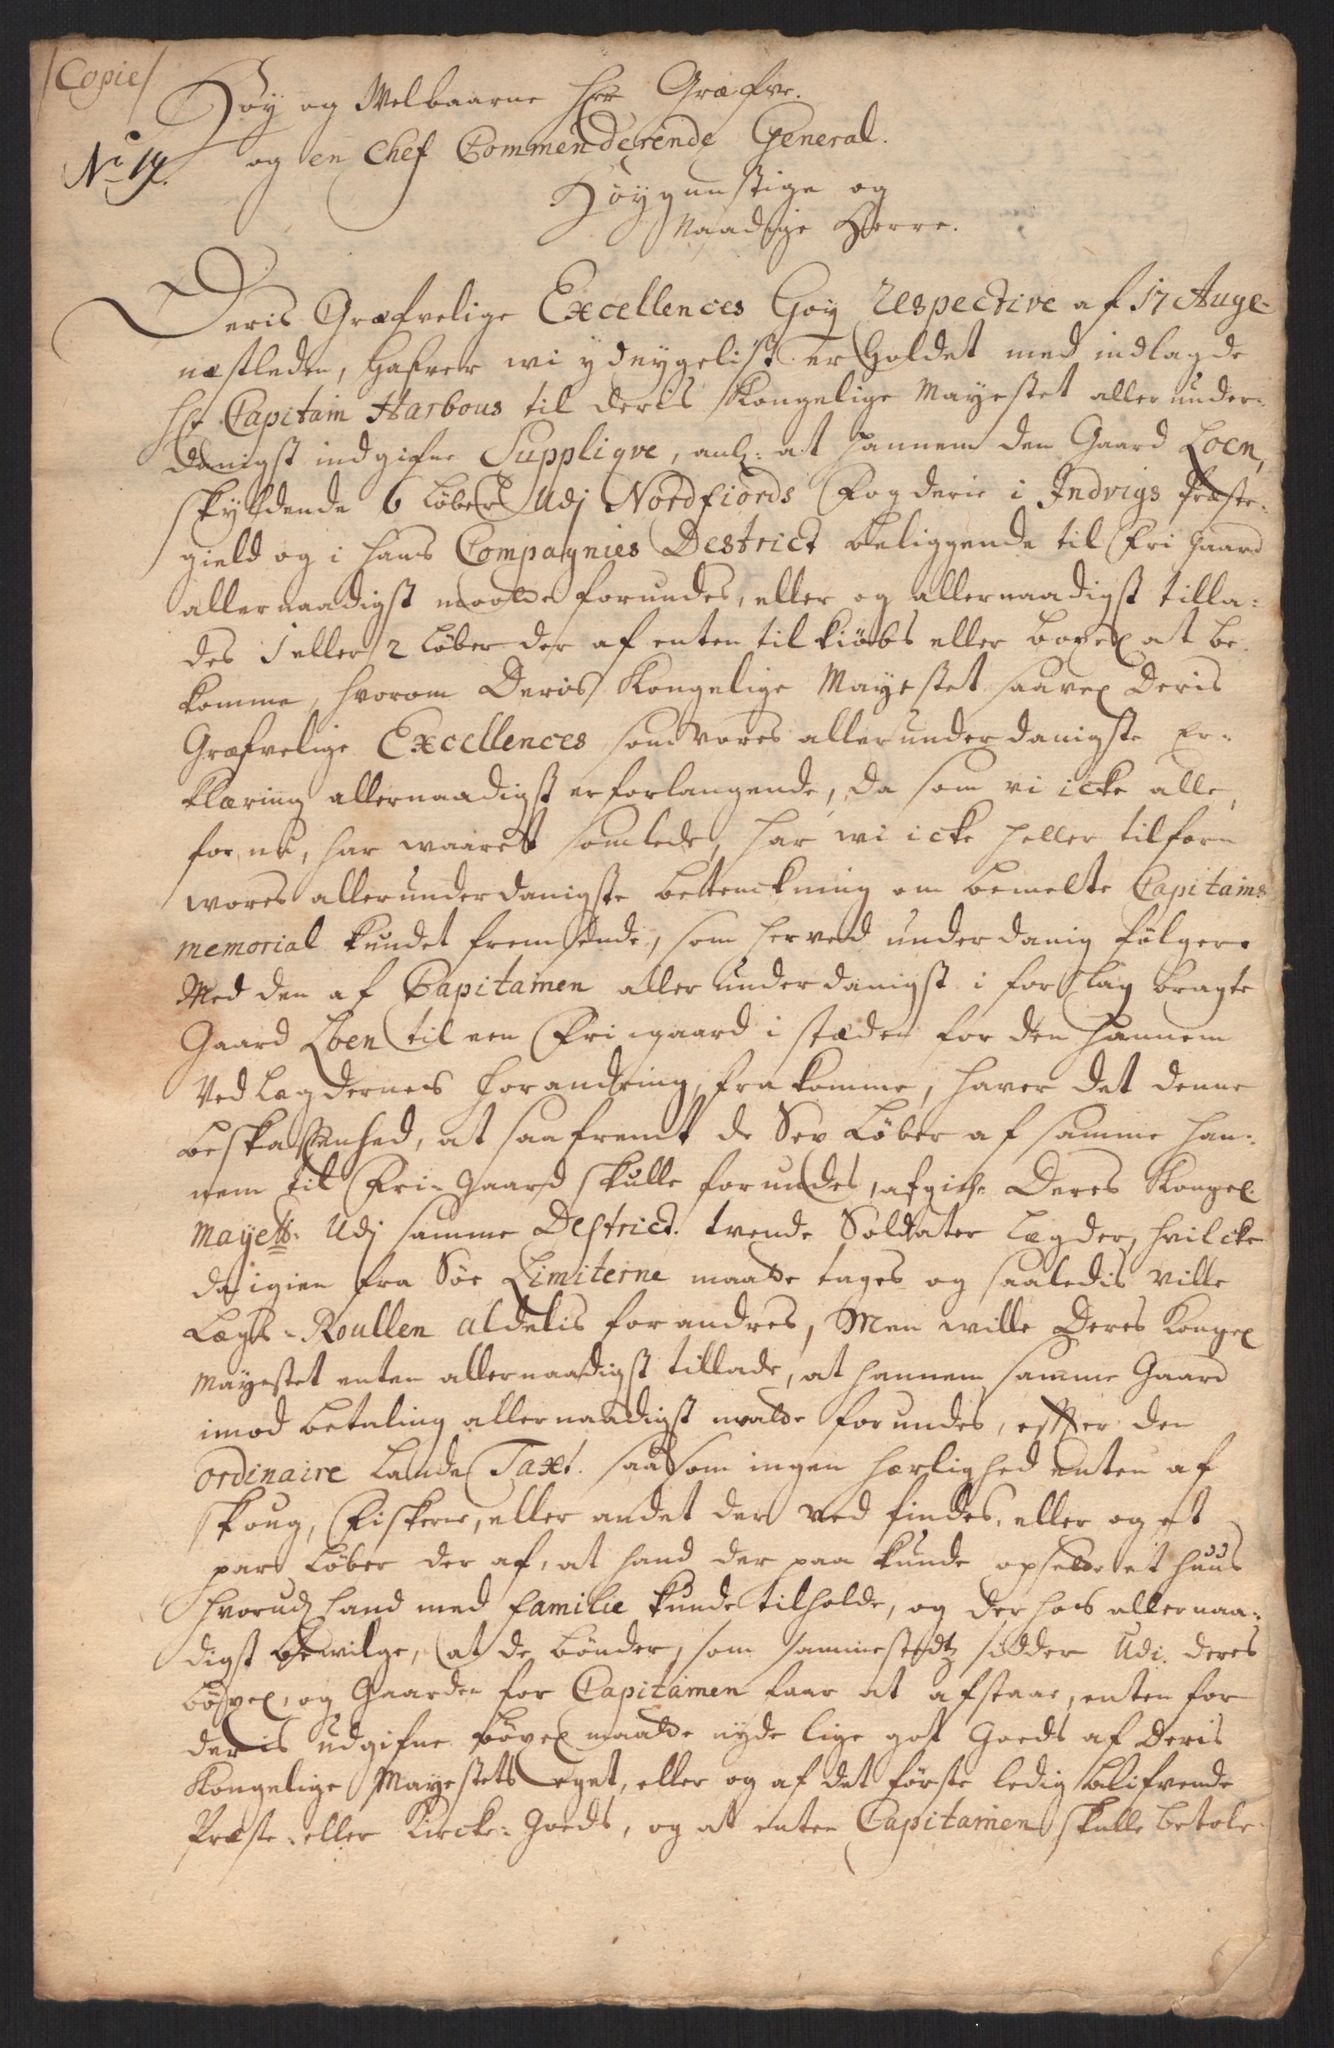 /Copie/
Høy og Welbaarne Herr Græfve.
No 14. og en Chef Commenderende General.
Høygunstige og
Naadige Herre.
Deris Græfvelige Excellences Høy respective af 17 Auge-
nestleden, hafver wi ydmygeligst erholdet med indlagde
Hr Capitain Harbous til deris Kongelige Mayestet allerunder-
danigst indgifne Supplique, anl: at hannem den Gaard Loen,
skyldende 6 Løber udj Nordfiords Fogderie i Indvigs Præste-
gield og i hans Compagnies Destrict beliggende til Fri Gaard
allernaadigst maatte forundes, eller og allernaadigst tilla-
des 1 eller 2 Løber der af enten til kiøbs eller bøxel at be-
komme, hvorom Deris Kongelige Mayestet saavel Deris
Græfvelige Excellences som vores allerunderdanigste Er-
klæring allernaadigst er forlangende, da som vi icke alle,
for nu, har waaret samlede, har wi icke heller tilforn
wores allerunderdanigste betenckning om bemelte Capitains
memorial kundet fremsende, som herved underdanig følger.
Med den af Capitainen allerunderdanigst i forslag bragte
Gaard Loen til een Fri-gaard i stæden for den hannem
ved Lægdernes forandring, frakomme, haver det denne
beskaffenhed, at saafremt de Sex Løber af samme han-
nem til Fri-Gaard skulle forundes, afgich Deres Kongel.
Mayetts: udj samme Destrict. trende Soldater Lægder, hvilcke
da igien fra Søe Limiterne maatte tages og saaledis ville
Lægds-Roullen aldelis forandres, Men wille Deres Kongel
Mayestet enten allernaadigst tillade, at hannem samme Gaard
imod betaling allernaadigst maatte forundes, efter den
ordinaire Lands Taxt. saasom ingen herlighed enten af
skoug, Fiskerie, eller andet der ved findes, eller og et
pars Løber der af, at hand der paa kunde opsette et huus
hvorudj hand med familie kunde tilholde, og der hos allernaa-
digst bewilge, at de bønder, som sammestedtz sidder udi deres
bøxel, og Gaarden for Capitainen faar at afstaae, enten for
deris udgifne bøxel maatte nyde lige got Goeds af Deris
Kongelige Mayestets eget, eller og af det første ledig blifvende
Præste- eller Kircke-Goeds, og at enten Capitainen skulle betale-